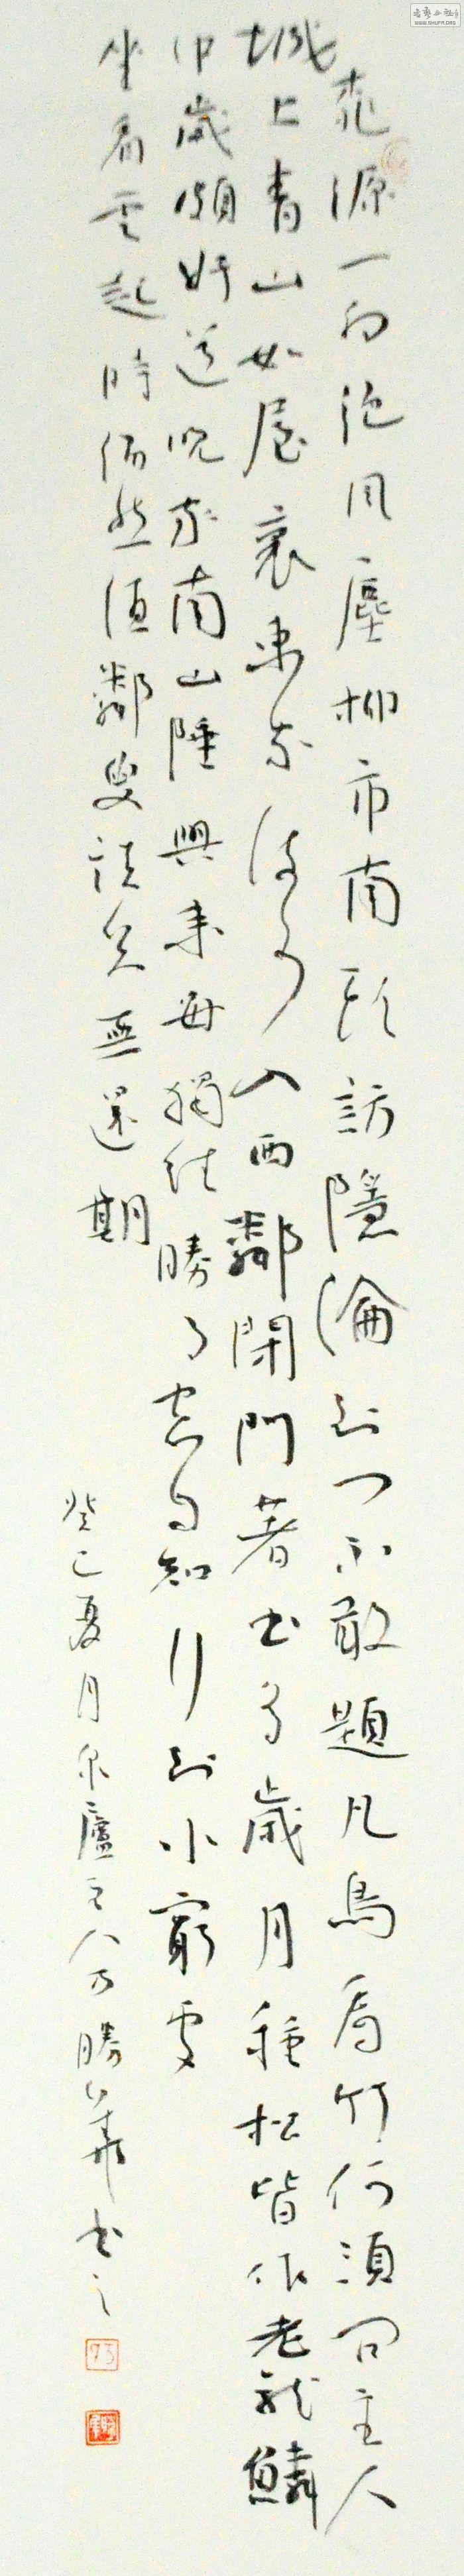 桃源一向絕風塵柳市南頭訪隱淪到門不敢題凡鳥看竹何須問主人
城上青山如屋裏東家流水入西鄰閉門著書多歲月種松皆作老龍鱗
中歲頗好道晚家南山陲興來每獨往勝事空自知行到水窮處
坐看雲起時偶然值鄰叟談笑無還期
癸巳夏月廬主人万勝華書之